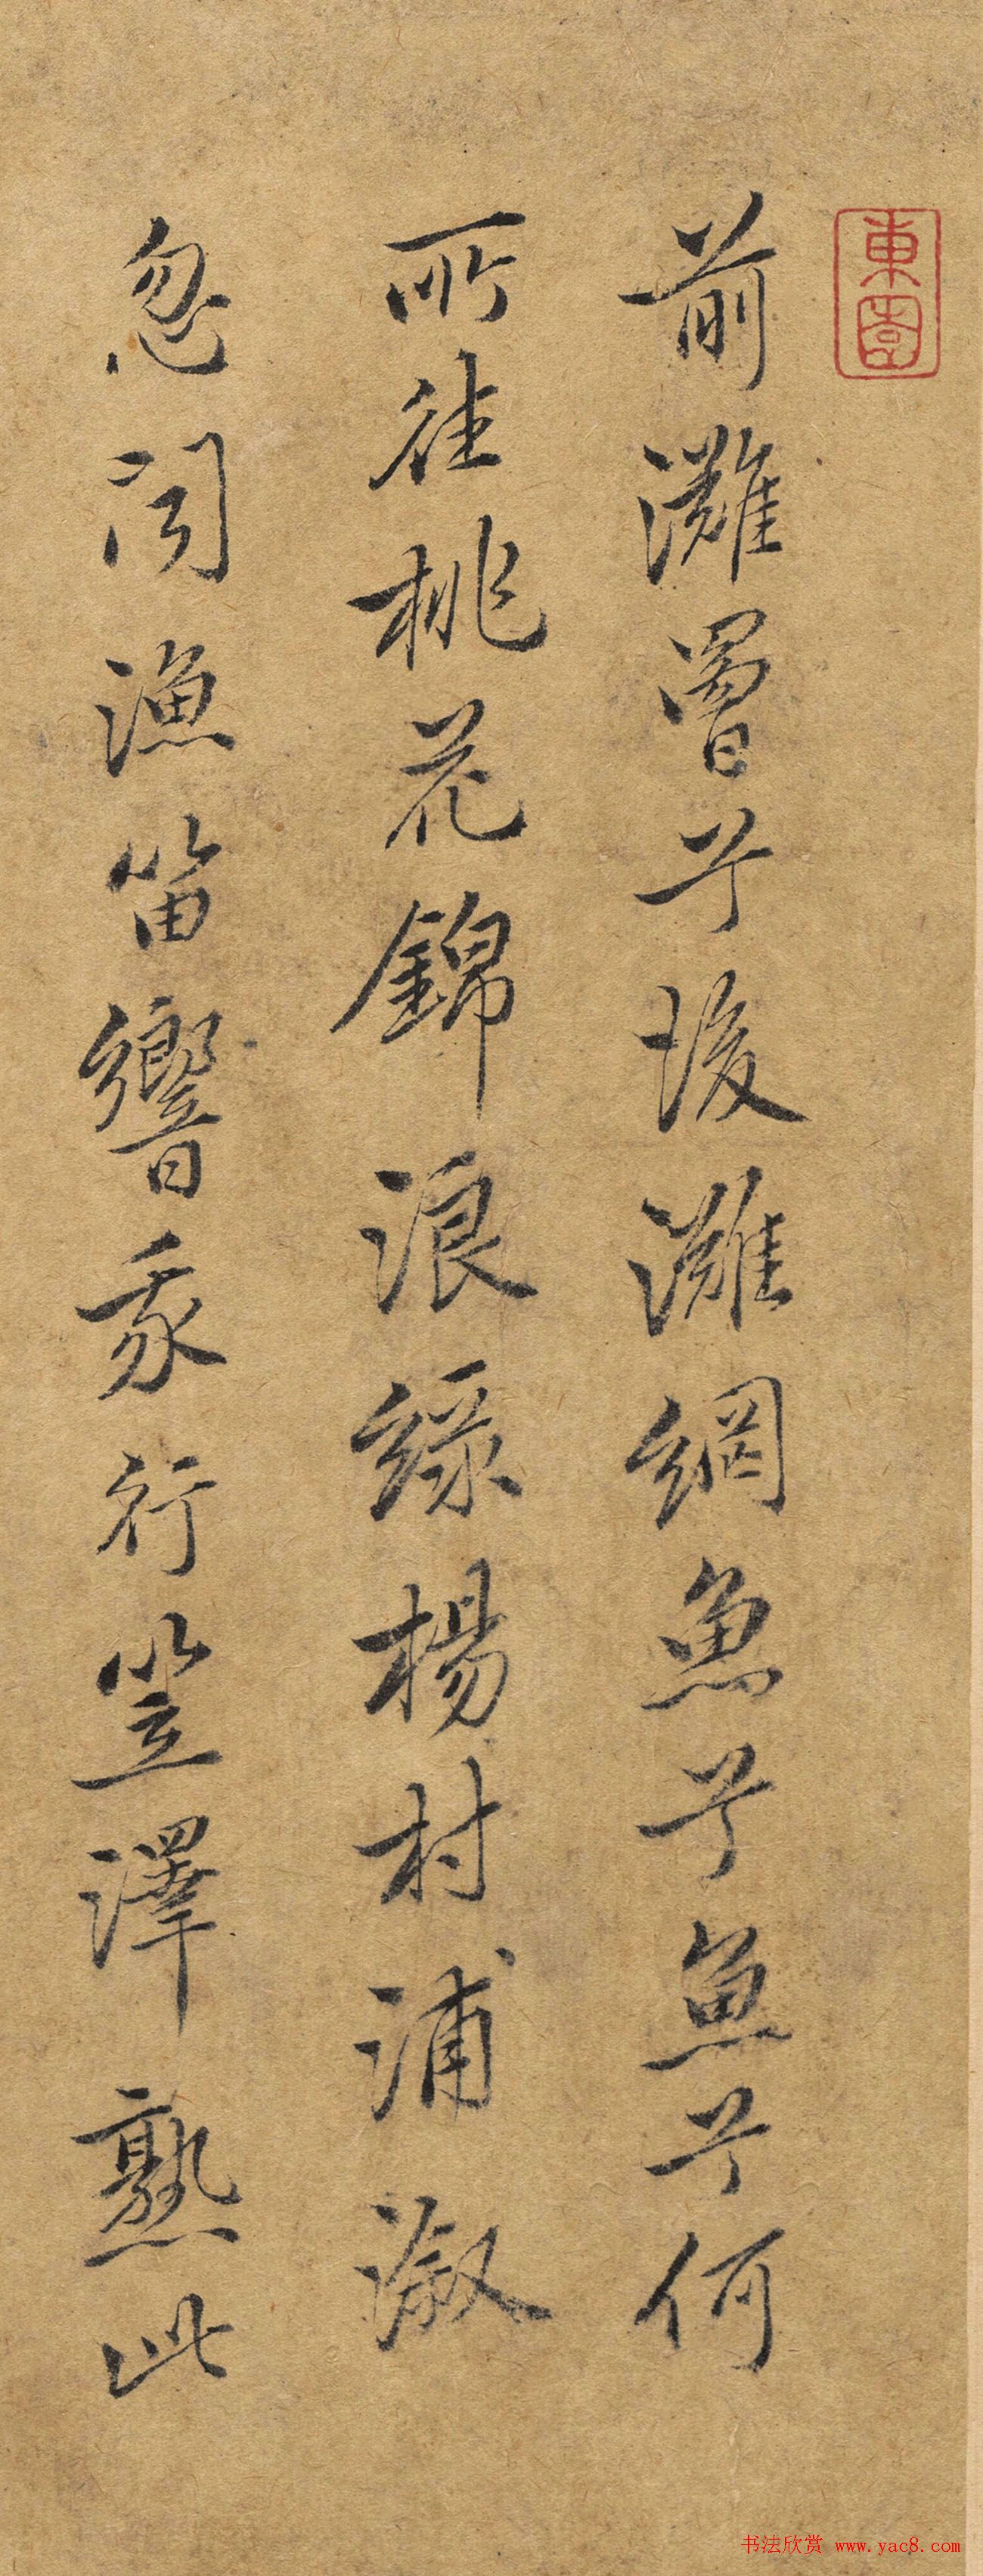 東
前灘罾兮後灘網魚兮魚兮何
所往桃花錦浪綠楊村浦漵
忽聞漁笛響我行笠澤熟此
书法欣赏 www.yac8.com